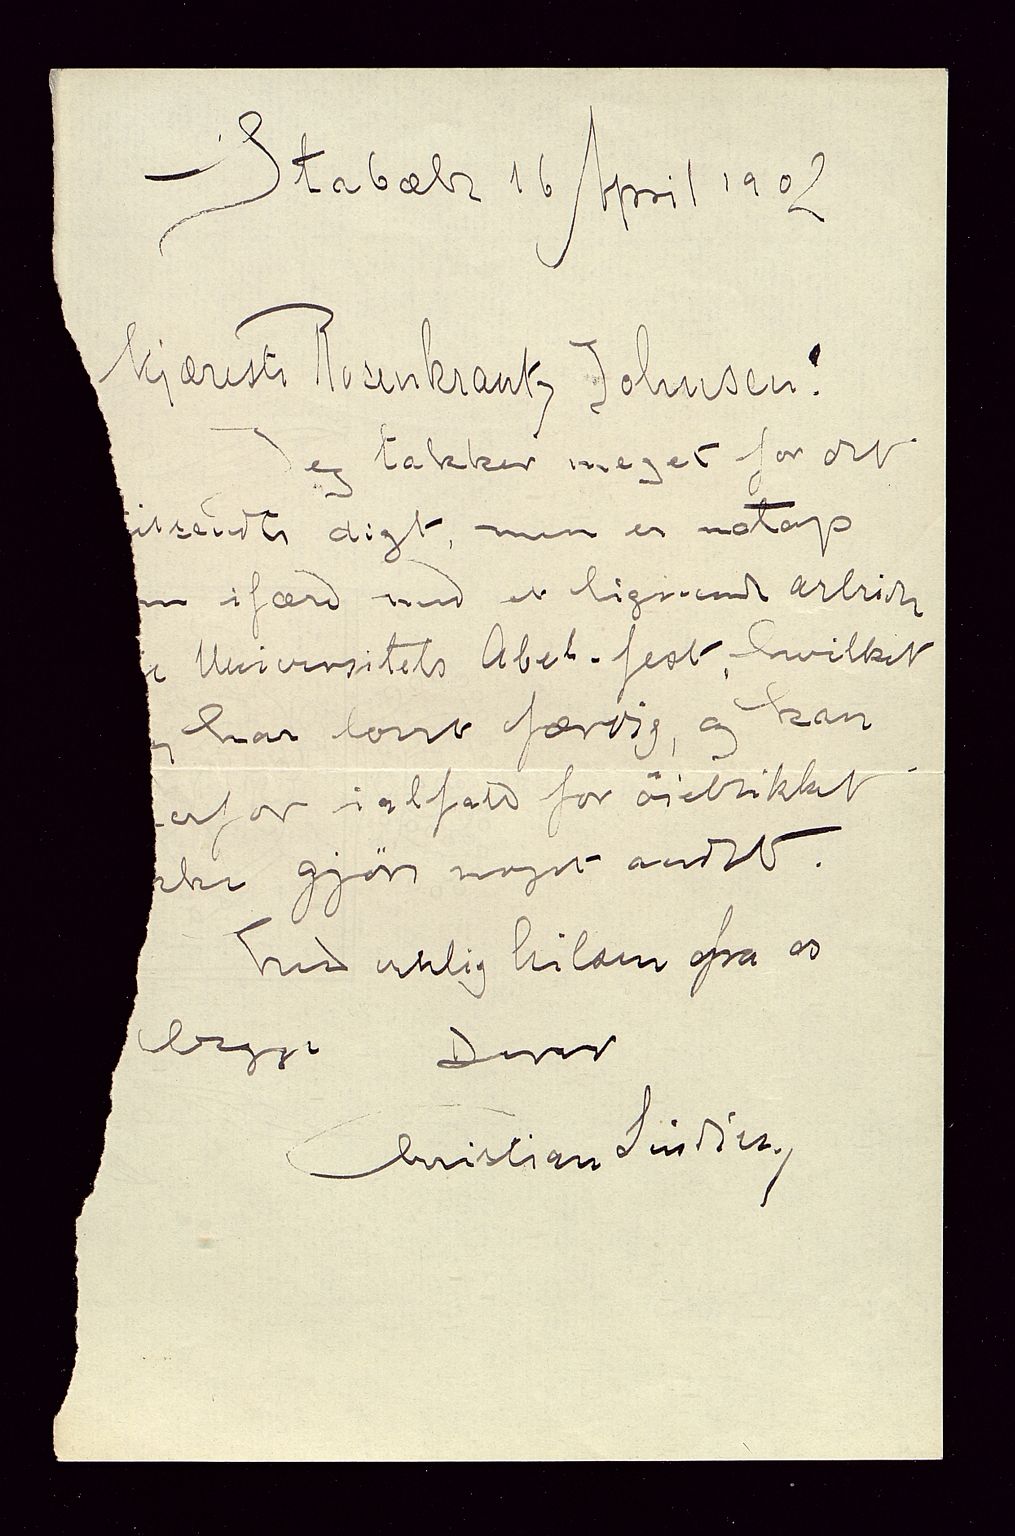 Stabæk 16 April 1902
Kjæreste Rosenkrantz Johnsen!
Jeg takker meget for det
tilsendte digt, men er netop
ifærd med et lignende arbeide
Universitets Abel-fest, hvilket
har lovet færdig, og kan
erfor ialfald for öieblikket
kke gjöre noget andet.
Med venlig hilsen fra os
begge Deres
Christian Sinding